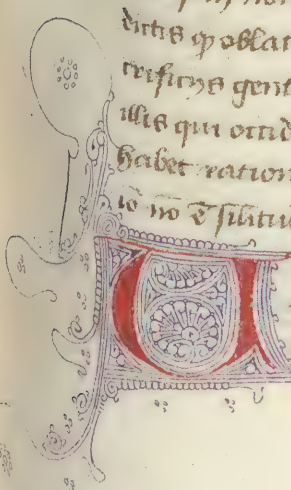 dictis qͥ oblat
crificijs gent
illis qui occid
habet ration
io nō ē silitu
U